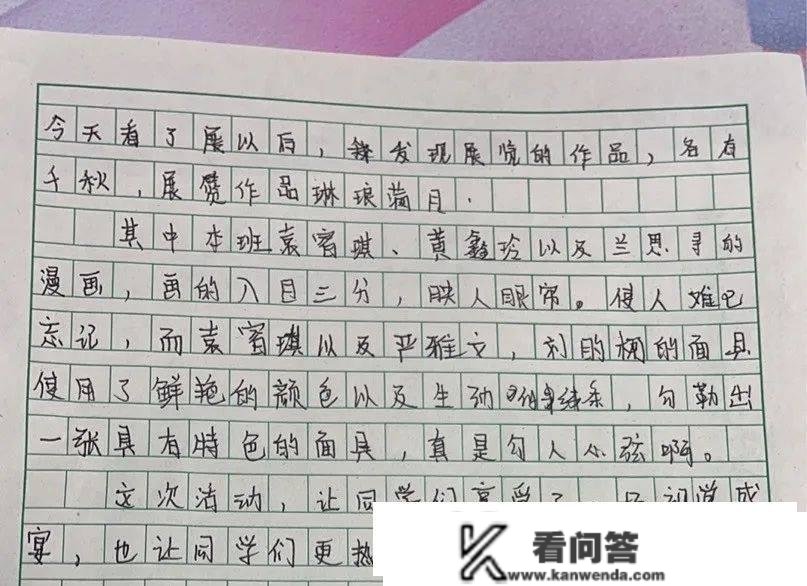 今天看了展以后，我发现展览的作品，各有
千秋，展赞作品琳琅满目.
其中本班袁宥琪、黄鑫玲以及兰思寻的
漫画，画的入目三分，映人眼帘。使人难已
忘记，而袁宥琪以及严雅文，刘的桐的面具
使用了鲜艳的颜色以及生动的线条，勾勒出
一张具有特色的面具，真是勾人心弦啊。
这次活动，让同学们享受了 视觉成
宴，也让同学们更热
看问答
www.kanwenda.com